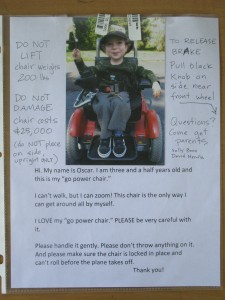 DO NOT
LIFT
chair weighs
200 lbs
DO NOT
DAMAGE
Chair costs
$25,000
(do NOT place
on side,
upright only)
To RELEASE
BRAKE
Pull black
Knob on
side near
front wheel
Questions?
Come get
parents
Hi. My name is Oscar. I am three and a half years old and
this is my "go power chair."
I can't walk, but I can zoom! This chair is the only way I
can get around all by myself.
I LOVE my "go power chair." PLEASE be very careful with
it.
Please handle it gently. Please don't throw anything on it.
And please make sure the chair is locked in place and
can't roll before the plane takes off.
Thank you!